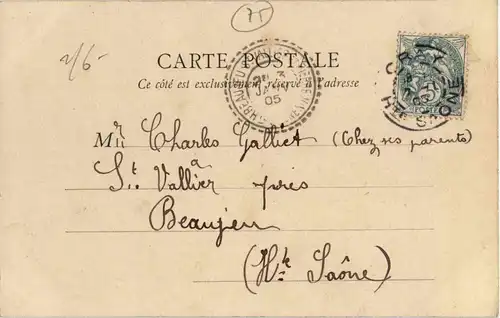 2/6-
77
CARTE POSTALE
Ce côté est exclusivement réservé à l'adresse
3
05
GRAY
Hte SAONE
Mr Charles Galliet (Chez ses parents)
à
St. Vallier près
Beaujeu
(Hte Saône)